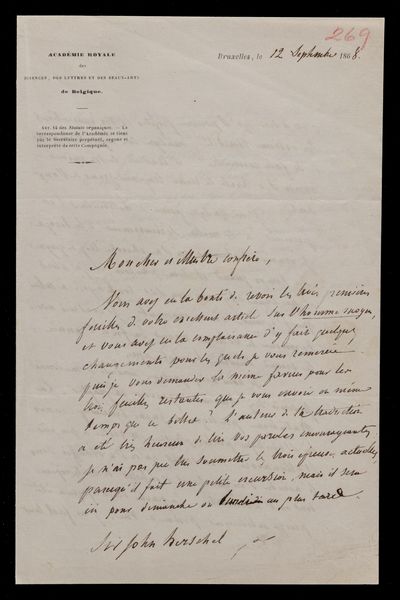 269
ACADÉMIE ROYALE
des
SCIENCES, DES LETTRES ET DES BEAUX-ARTS
de Belgique.
Bruxelles, le 12 Septembre 1868.
Art. 14 des Statuts organiques. — La
correspondance de l'Académie se tient
par le Secrétaire perpétuel, organe et
interprète de cette Compagnie.
Mon cher et illustre confrère,
Vous avez eu la bonté de revoir les trois premières
feuilles de votre excellent article sur l'homme moyen
et vous avez eu la complaisance d'y faire quelques
changements pour lesquels je vous remercie,
puis je vous demander la même faveur pour les
trois feuilles restantes que je vous envoie en même
temps que ce billet? l'auteur de la traduction
a été très heureux de lire vos paroles encourageantes,
je n'ai pas pu lui soumettre les trois épreuves actuelles,
parcequ'il fait une petite excursion, mais il sera
ici pour dimanche ou lundi au plus tard.
Sir John Herschel